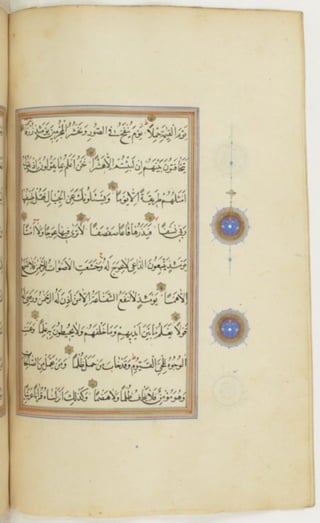 يوم القيمة حملا يوم ينفخ في الصور ونحشر المجرمين يومئذ زرقا
يتخافتون بينهم ان لبثتم الا عشرا نحن اعلم بما يقولون اذ يقول
امثلهم طريقة ان لبثتم الا يوما ويسئلونك عن الجبال فقل ينسفها
ربي نسفا فيذرها قاعا صفصفا لا ترى فيها عوجا ولا امتا
يومئذ يتبعون الداعي لا عوج له وخشعت الاصوات للرحمن فلا تسمع
الا همسا يومئذ لا تنفع الشفاعة الا من اذن له الرحمن ورضي له
قولا يعلم ما بين ايديهم وما خلفهم ولا يحيطون به علما وعنت
الوجوه للحي القيوم وقد خاب من حمل ظلما ومن يعمل من الصالحات
وهو مؤمن فلا يخاف ظلما ولا هضما وكذلك انزلناه قرانا عربيا